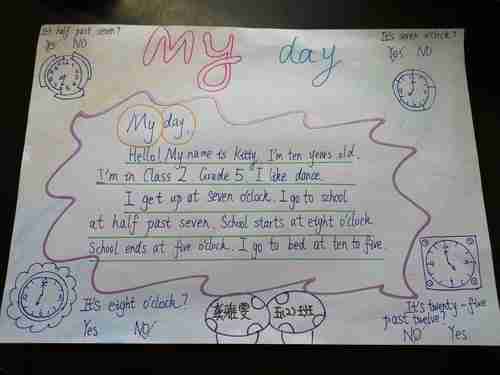 It half past seven?
Yes NO
My day
It's seven o'clock?
Yes NO
My day.
Hello! My name is Kitty. I'm ten years old.
I'm in Class 2. Grade 5. I like dance.
I get up at seven o'clock. I go to school
at half past seven. School starts at eight o'clock
School ends at five o'clock. I go to bed at ten to five.
It's eight o'clock?
Yes NO
五(2)班
It's twenty-five
past twelve?
NO Yes